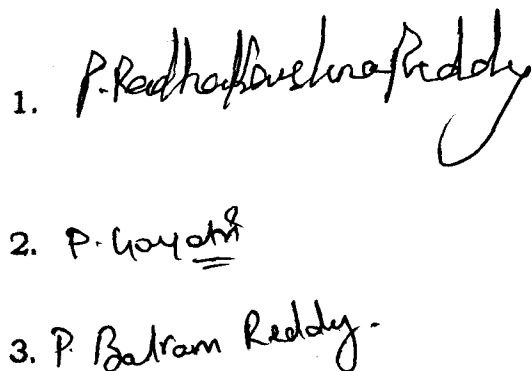 1. P. Radhakrushna Reddy
2. P. Gayatri
3. P. Balram Reddy.